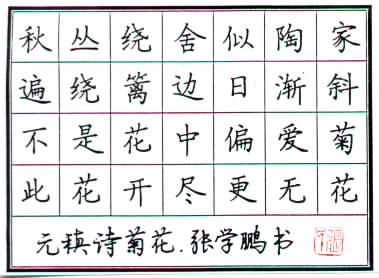 秋丛绕舍似陶家
遍绕篱边日渐斜
不是花中偏爱菊
此花开尽更无花
元稹诗菊花.张学鹏书